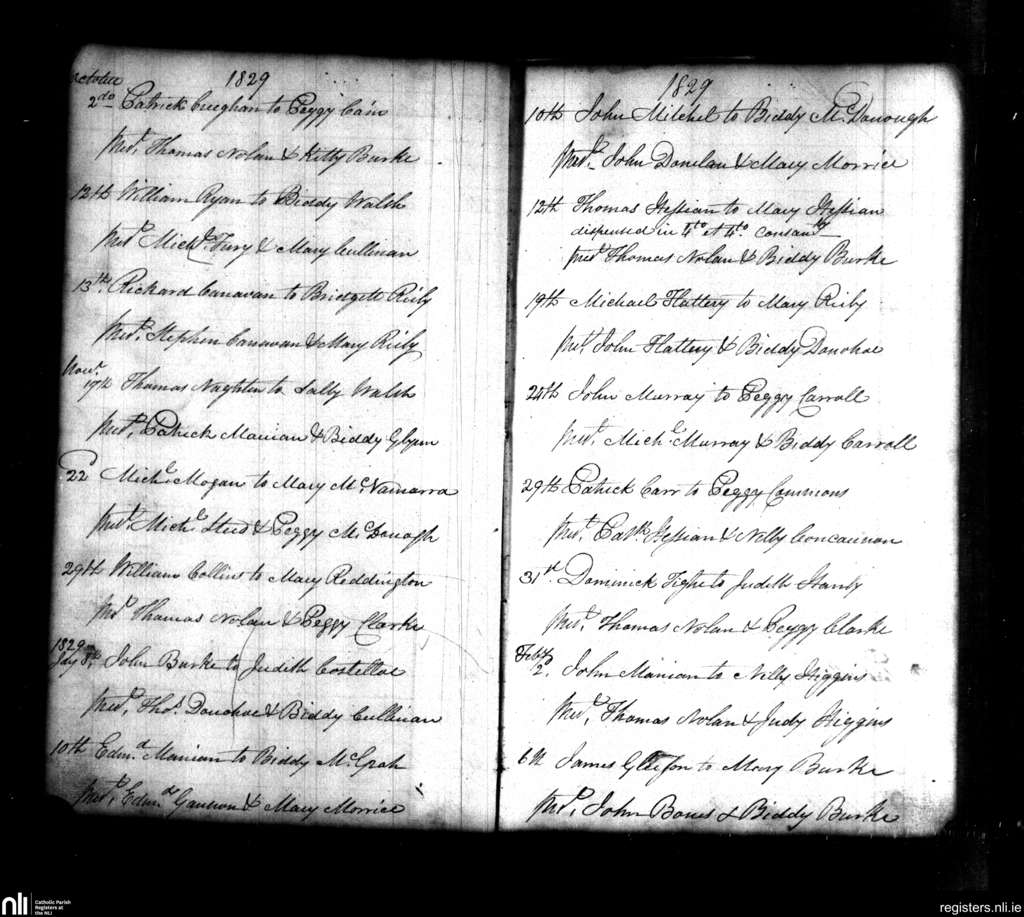 1829
October
2do Patrick Creghan to Peggy Cain
Prest. Thomas Nolan & Kitty Burke
12th William Ryan to Biddy Walsh
Prest Michl. Fury & Mary Cullinan
13th. Rickard Canavan to Bridgett Riely
Prest. Stephen Canavan & Mary Riely
Novr.
19th Thomas Naghten to Sally Walsh
Prest. Patrick Manian & Biddy Glynn
22d Michl. Mogan to Mary McNamarra
Prest. Michl & Peggy McDonogh
29th William Collins to Mary Reddington
Prest Thomas Nolan & Peggy Clarke
1829
Jany 8th. John Burke to Judith Costelloe
Prest. Thos. Donohoe & Biddy Cullinan
10th Edmd. Manian to Biddy McGrah
Prest. Edmd & Mary Morrice
1829
10th John Mitchel to Biddy McDonough
Prest. John Donelan & Mary Morrice
12th Thomas Hession to Mary Hession
dispensed in 4to et 4to. consanty
Prest Thomas Nolan & Biddy Burke
19th Michael Flattery to Mary Riely
Prest. John Flattery & Biddy Donohoe
24th John Murray to Peggy Carroll
Prest. Michl. Murray & Biddy Carroll
29th Patrick Carr to Peggy Commons
Prest. Patk. Hession & Nelly Concannon
31st. Dominick Tighe to Judith
Prest. Thomas Nolan & Peggy Clarke
Feby
2. John Manian to Nelly Higgins
Prest. Thomas Nolan & Judy Higgins
6th James Gleeson to Mary Burke
Prest. John Bones & Biddy Burke
nli
Catholic Parish
Registers at
the NLI
registers.nli.ie